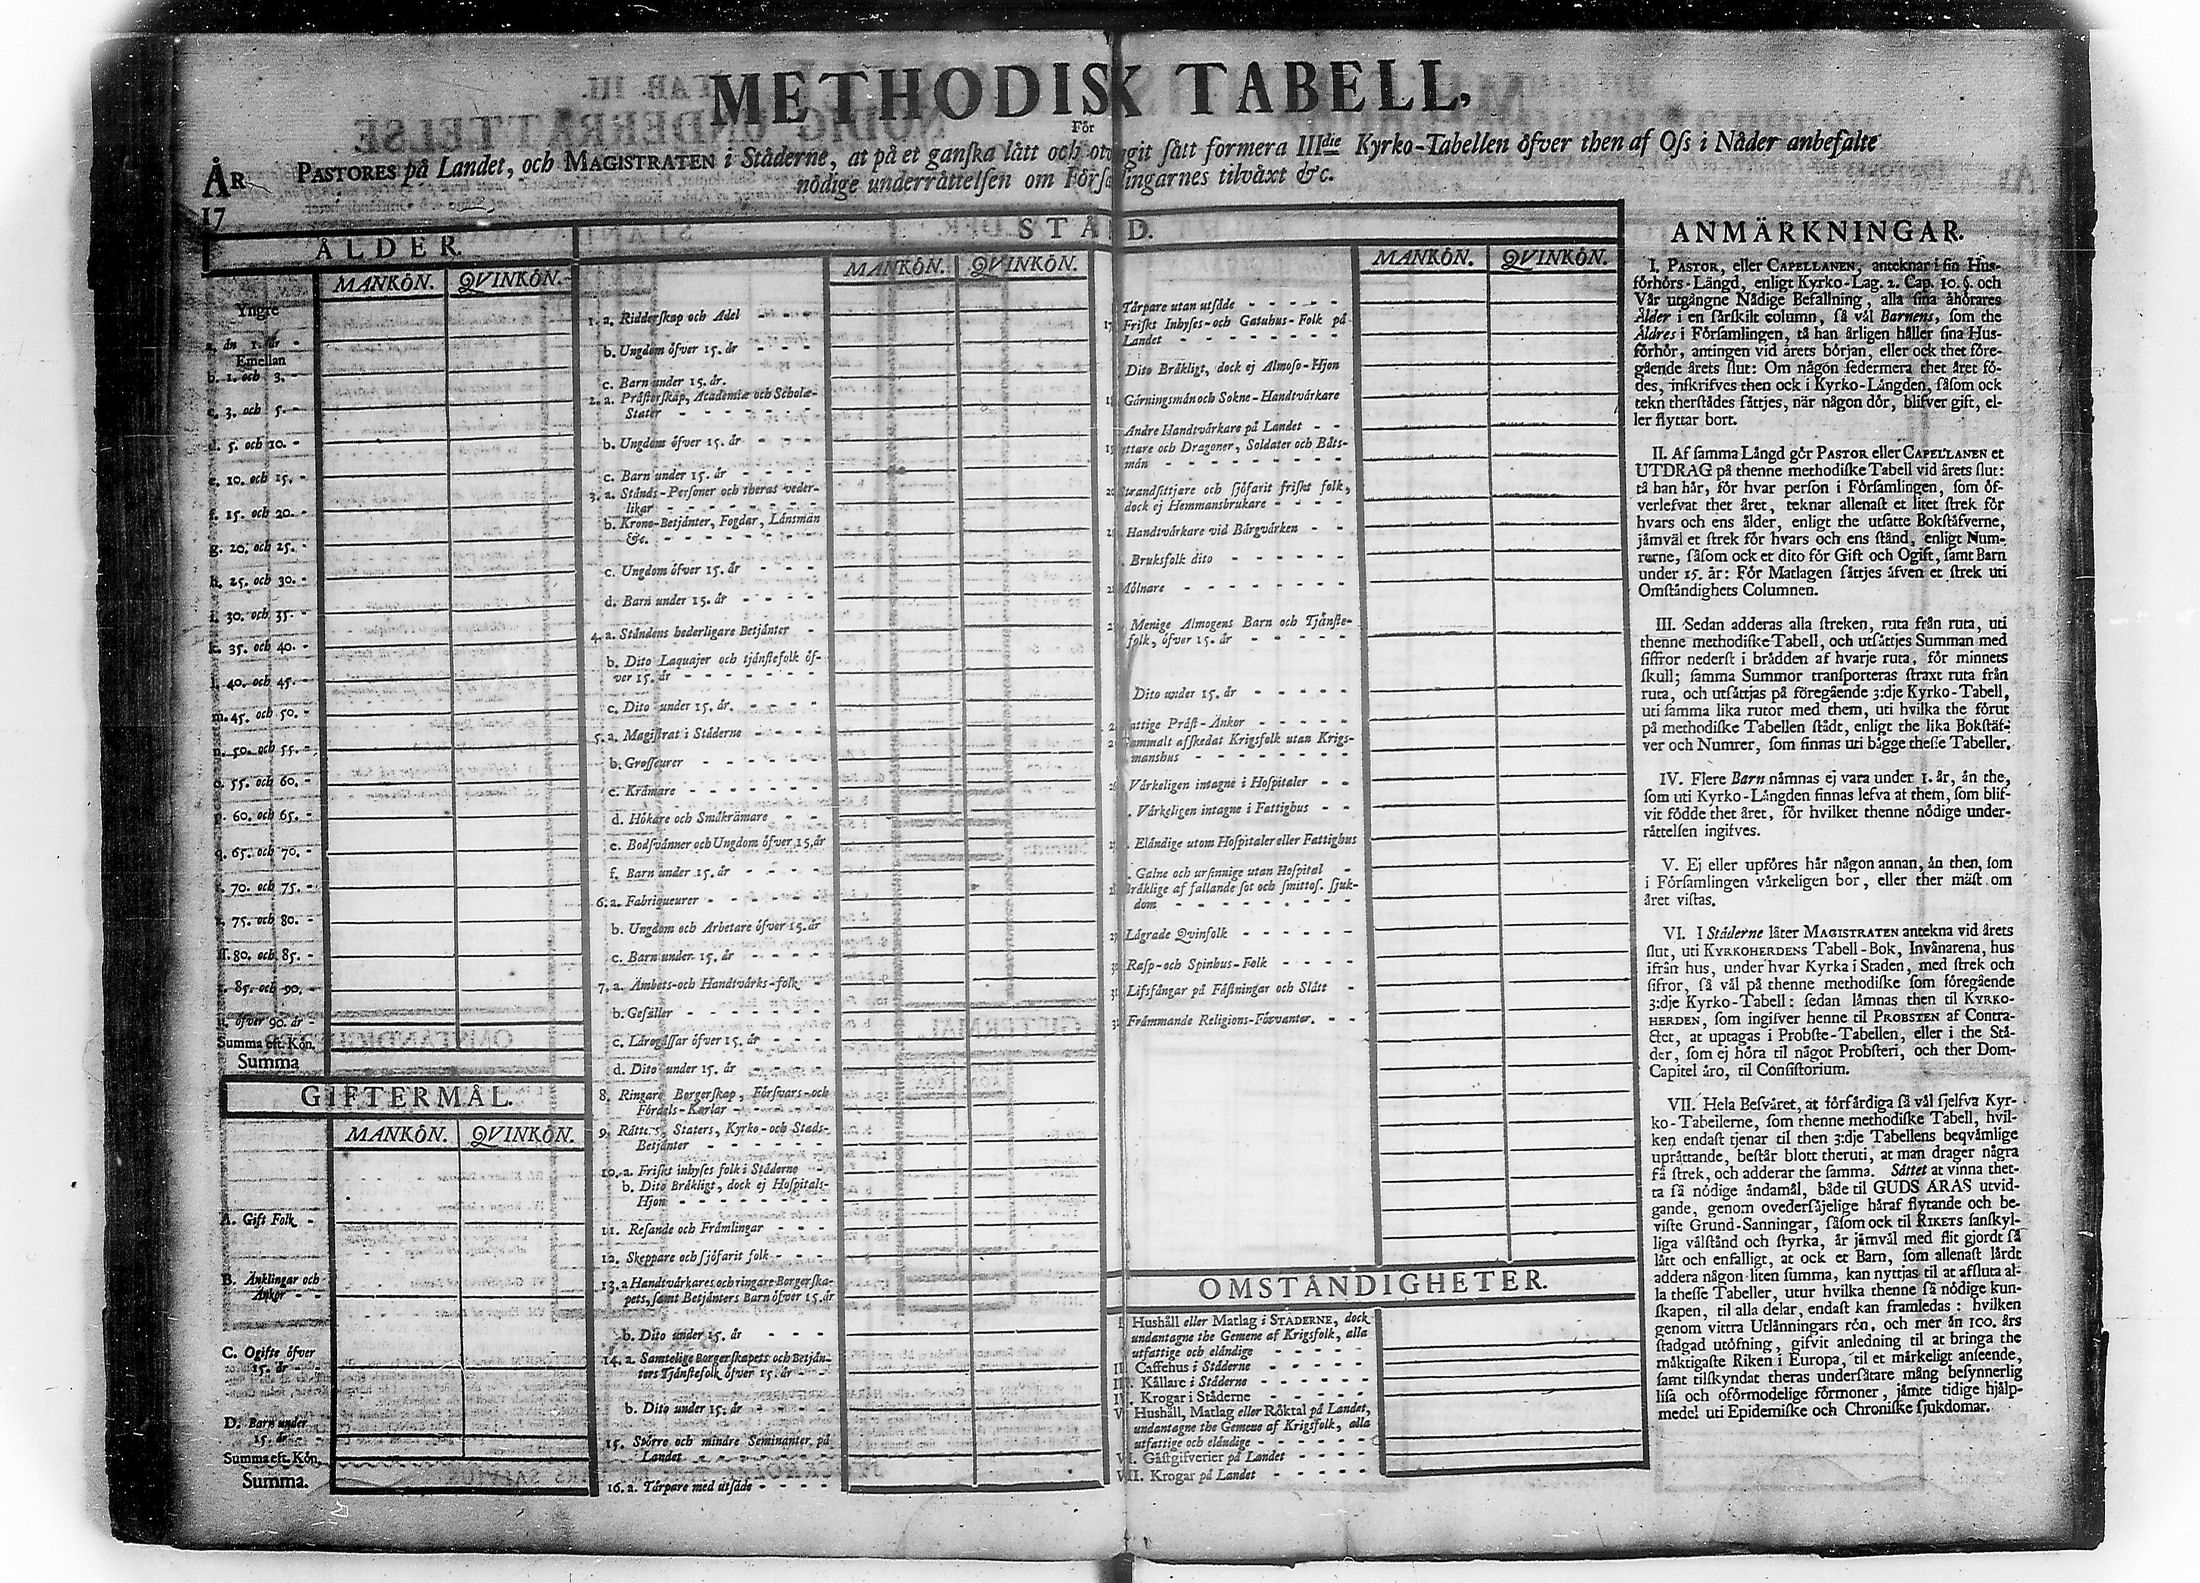 METHODISK TABELL,
För
ÅR PASTORES på Landet, och MAGISTRATEN i Städerne, at på et ganska lätt och otvungit sätt formera IIIdie Kyrko-Tabellen öfver then af Oss i Nåder anbefalte
17 nödige underrättelsen om Församlingarnes tilväxt &c.
ÅLDER.
MANKÖN. QVINKÖN.
Yngre
a. än 1. år -
Emellan
b. 1. och 3. -
c. 3. och 5. -
d. 5. och 10. -
e. 10. och 15. -
f. 15. och 20. -
g. 20. och 25. -
h. 25. och 30. -
i. 30. och 35. -
k. 35. och 40. -
l. 40. och 45. -
m. 45. och 50. -
n. 50. och 55. -
o. 55. och 60. -
p. 60. och 65. -
q. 65. och 70. -
r. 70. och 75. -
s. 75. och 80. -
ss. 80. och 85. -
t. 85. och 90. -
u. öfver 90. år -
Summa eft. Kön.
Summa
GIFTERMÅL.
MANKÖN. QVINKÖN.
A. Gift Folk -
B. Änklingar och
Änkor - -
C. Ogifte öfver
15. år - -
D. Barn under
15. år - -
Summa eft. Kön.
Summa.
STÅND.
MANKÖN. QVINKÖN.
1. a. Ridderskap och Adel - - - -
b. Ungdom öfver 15. år - - - -
c. Barn under 15. år.
2. a. Prästerskap, Academiæ och Scholæ-
Stater - - - - - - -
b. Ungdom öfver 15. år - - - -
c. Barn under 15. år - - - -
3. a. Stånds-Personer och theras veder-
likar - - - - - - -
b. Krono-Betjänter, Fogdar, Länsmän
&c. - - - - - - -
c. Ungdom öfver 15. år - - - -
d. Barn under 15. år - - - - -
4. a. Ståndens hederligare Betjänter -
b. Dito Laquajer och tjänstefolk öf-
ver 15. år - - - - - - -
c. Dito under 15. år. - - - -
5. a. Magistrat i Städerne - - - -
b. Grosseurer - - - - - -
c. Krämare - - - - - - -
d. Hökare och Småkrämare - -
e. Bodsvänner och Ungdom öfver 15. år
f. Barn under 15. år - - - -
6. a. Fabriqueurer - - - - - -
b. Ungdom och Arbetare öfver 15. år
c. Barn under 15. år - - - -
7. a. Ämbets-och Handtvärks-folk -
b. Gesäller - - - - - - -
c. Lärogåssar öfver 15. år - - -
d. Dito under 15. år - - - -
8. Ringare Borgerskap, Försvars-och
Fördels-Karlar - - - - -
9. Rätters, Staters, Kyrko-och Stads-
Betjänter - - - - - -
10. a. Friskt inhyses folk i Städerne -
b. Dito Bräkligt, dock ej Hospitals-
Hjon - - - - - - -
11. Resande och Främlingar - - -
12. Skeppare och sjöfarit folk - - -
13. a Handtvärkares och ringare Borgerska-
pets, samt Betjänters Barn öfver 15. år
b. Dito under 15. år - - -
14. a. Samtelige Borgerskapets och Betjän-
ters Tjänstefolk öfver 15. år - -
b. Dito under 15. år - - - -
15. Större och mindre Seminanter på
Landet - - - - - - -
16. a. Tårpare med utsäde - - - -
MANKÖN. QVINKÖN.
Tårpare utan utsäde - - - - -
17 Friskt Inhyses-och Gatuhus-Folk på
Landet - - - - - - -
Dito Bräkligt, dock ej Almoso-Hjon
Gärningsmän och Sokne-Handtvärkare
Andre Handtvärkare på Landet - -
ttare och Dragoner, Soldater och Båts-
män - - - - - - - -
Strandsittjare och sjöfarit friskt folk,
dock ej Hemmansbrukare - - - -
Handtvärkare vid Bärgvärken - -
Bruksfolk dito - - - - - -
Mölnare - - - - - - - -
Menige Almogens Barn och Tjänste-
folk, öfver 15. år - - - - -
Dito under 15. år - - - - -
attige Präst-Änkor - - - - -
Gammalt afskedat Krigsfolk utan Krigs-
manshus - - - - - - -
Värkeligen intagne i Hospitaler - -
Värkeligen intagne i Fattighus - -
Eländige utom Hospitaler eller Fattighus
Galne och ursinnige utan Hospital -
Bräklige af fallande sot och smittos. sjuk-
dom - - - - - - - -
Lägrade Qvinfolk - - - - -
Rasp-och Spinhus-Folk - - - -
Lifsfångar på Fästningar och Slått -
Främmande Religions-Förvanter. - -
OMSTÄNDIGHETER.
Hushåll eller Matlag i STÄDERNE, dock
undantagne the Gemene af Krigsfolk, alla
utfattige och eländige - - - - -
II. Caffehus i Städerne - - - - -
III. Källare i Städerne - - - - -
IV. Krogar i Städerne - - - - -
V Hushåll, Matlag eller Röktal på Landet,
undantagne the Gemene af Krigsfolk, alla
utfattige och eländige - - - - -
VI. Gästgifverier på Landet - - - -
VII. Krogar på Landet - - - - -
ANMÄRKNINGAR.
I. PASTOR, eller CAPELLANEN, anteknar i sin Hus-
förhörs-Längd, enligt Kyrko-Lag. 2. Cap. 10. §. och
Vår utgångne Nådige Befallning, alla sina åhörares
Ålder i en särskilt column, så väl Barnens, som the
Äldres i Församlingen, tå han årligen håller sina Hus-
förhör, antingen vid årets början, eller ock thet före-
gående årets slut: Om någon sedermera thet året fö-
des, inskrifves then ock i Kyrko-Längden, såsom ock
tekn therstädes sättjes, när någon dör, blifver gift, el-
ler flyttar bort.
II. Af samma Längd gör PASTOR eller CAPELLANEN et
UTDRAG på thenne methodiske Tabell vid årets slut:
tå han här, för hvar person i Församlingen, som öf-
verlefvat thet året, teknar allenast et litet strek för
hvars och ens ålder, enligt the utsatte Bokstäfverne,
jämväl et strek för hvars och ens stånd, enligt Num-
rerne, såsom ock et dito för Gift och Ogift, samt Barn
under 15. år: För Matlagen sättjes äfven et strek uti
Omständighets Columnen.
III. Sedan adderas alla streken, ruta från ruta, uti
thenne methodiske Tabell, och utsättjes Summan med
siffror nederst i brädden af hvarje ruta, för minnets
skull; samma Summor transporteras straxt ruta från
ruta, och utsättjas på föregående 3:dje Kyrko-Tabell,
uti samma lika rutor med them, uti hvilka the förut
på methodiske Tabellen städt, enligt the lika Bokstäf-
ver och Numrer, som finnas uti bägge thesse Tabeller.
IV. Flere Barn nämnas ej vara under 1. år, än the,
som uti Kyrko-Längden finnas lefva at them, som blif-
vit födde thet året, för hvilket thenne nödige under-
rättelsen ingifves.
V. Ej eller upföres här någon annan, än then, som
i Församlingen värkeligen bor, eller ther mäst om
året vistas.
VI. I Städerne låter MAGISTRATEN antekna vid årets
slut, uti KYRKOHERDENS Tabell-Bok, Invånarena, hus
ifrån hus, under hvar Kyrka i Staden, med strek och
siffror, så väl på thenne methodiske som föregående
3:dje Kyrko-Tabell: sedan lämnas then til KYRKO-
HERDEN, som ingifver henne til PROBSTEN af Contra-
ctet, at uptagas i Probste-Tabellen, eller i the Stä-
der, som ej höra til något Probsteri, och ther Dom-
Capitel äro, til Consistorium.
VII. Hela Besväret, at förfärdiga så väl sjelfva Kyr-
ko-Tabellerne, som thenne methodiske Tabell, hvil-
ken endast tjenar til then 3:dje Tabellens beqvämlige
uprättande, består blott theruti, at man drager några
få strek, och adderar the samma. Sättet at vinna thet-
ta så nödige ändamål, både til GUDS ÄRAS utvid-
gande, genom ovedersäjelige häraf flytande och be-
viste Grund-Sanningar, såsom ock til RIKETS sanskyl-
liga välstånd och styrka, är jämväl med flit gjordt så
lätt och enfalligt, at ock et Barn, som allenast lärdt
addera någon liten summa, kan nyttjas til at afsluta al-
la thesse Tabeller, utur hvilka thenne så nödige kun-
skapen, til alla delar, endast kan framledas: hvilken
genom vittra Utlänningars rön, och mer än 100. års
stadgad utöfning, gifvit anledning til at bringa the
mäktigaste Riken i Europa, til et märkeligt anseende,
samt tilskyndat theras undersåtare mång besynnerlig
lisa och oförmodelige förmoner, jämte tidige hjälp-
medel uti Epidemiske och Chroniske sjukdomar.